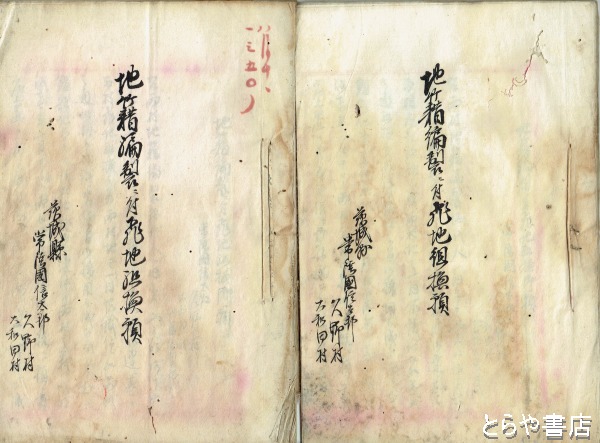 地籍編製ニ付飛地組換願
茨城縣
常陸國信太郡
久野村
大和田村
地籍編製ニ付飛地組換願
茨城縣
常陸國信太郡
久野村
大和田村
とらや書店